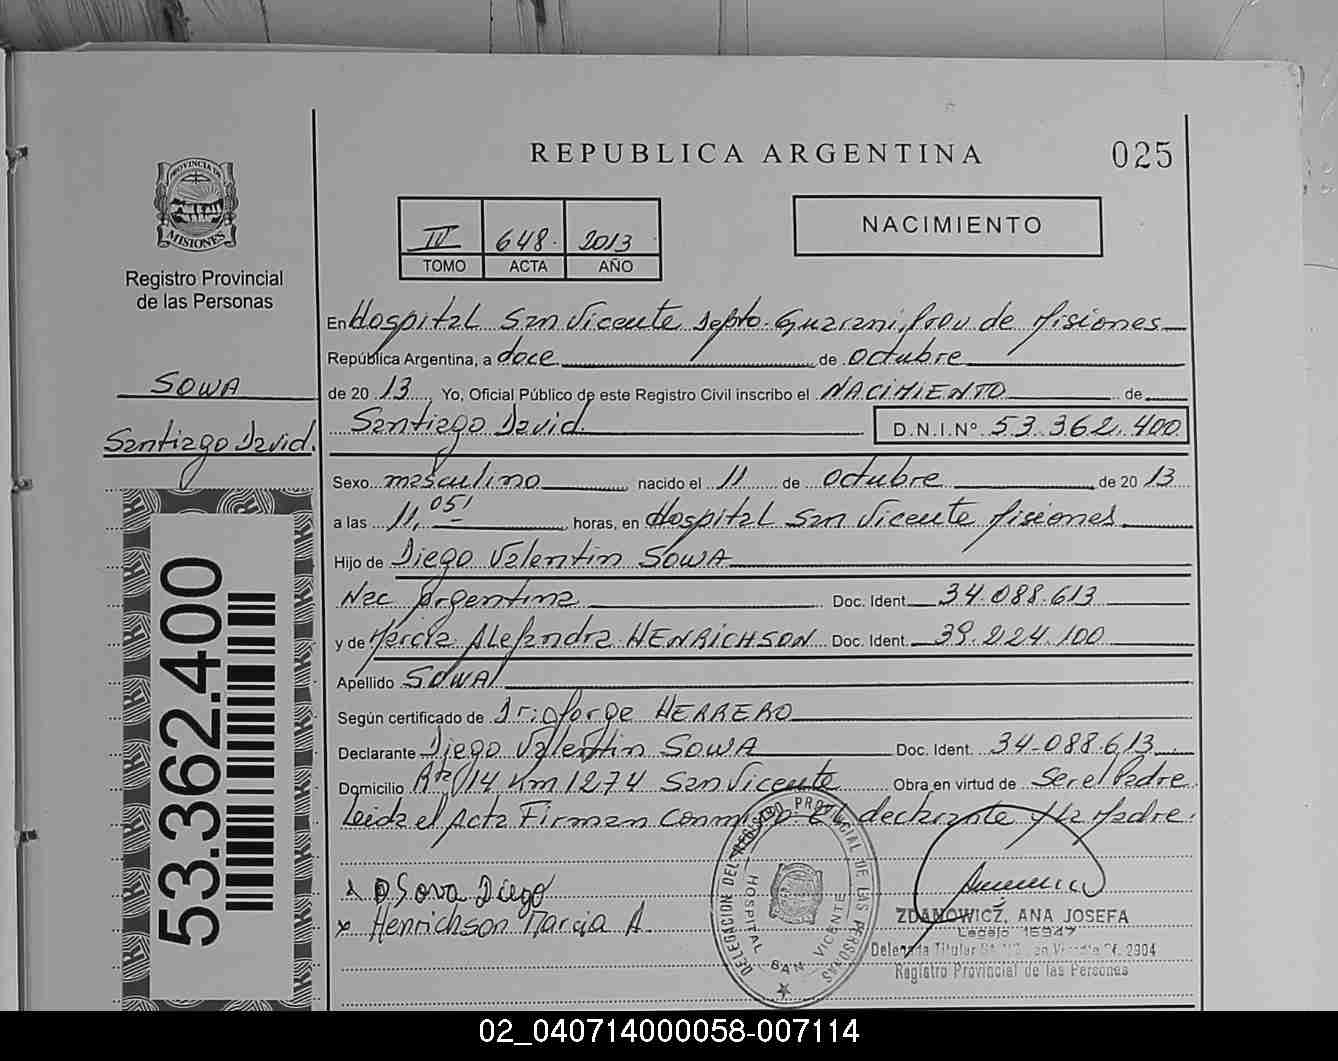 REPUBLICA ARGENTINA
025
PROVINCIA DE
MISIONES
Registro Provincial
de las Personas
IV 648. 2013
TOMO ACTA AÑO
NACIMIENTO
En Hospital San Vicente Depto. Guarani, Prov de Misiones
República Argentina, a doce de octubre
de 20 13 Yo, Oficial Público de este Registro Civil inscribo el NACIMIENTO de
Santiago David. D.N.I.Nº 53.362.400
SOWA
Santiago David.
Sexo masculino nacido el 11 de octubre de 20 13
a las 11,05' horas, en Hospital San Vicente Misiones
Hijo de Diego Valentin SOWA
Nac Argentina Doc. Ident. 34.088.613
y de Marcia Alejandra HENRICHSON Doc. Ident. 39.224.100
Apellido SOWA
Según certificado de HERRERO
Declarante Diego Valentin SOWA Doc. Ident. 34-088.613
Domicilio Rta 14 Km 1274 San Vicente Obra en virtud de Ser el Padre
Leida el Acta Firman Conmigo El declarante y la Madre.
Sova Diego
x Henrichson Marcia A.
53.362.400
DELEGACION DEL REGISTRO PROVINCIAL DE LAS PERSONAS
HOSPITAL SAN VICENTE
ZDANOWICZ, ANA JOSEFA
Legajo 15347
Delegada Titular
Registro Provincial de las Personas
02_040714000058-007114